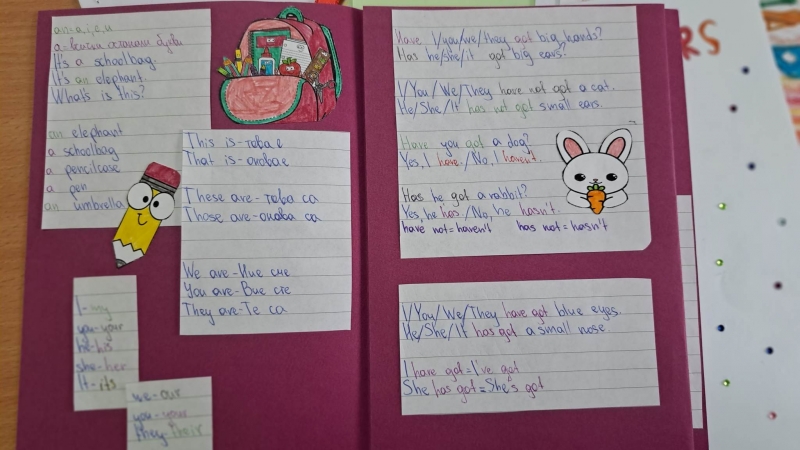 an-a,i,e,u
а-всички останали букви
It's a schoolbag.
It's an elephant.
What's is this?
an elephant
a schoolbag
a pencilcase
a pen
an umbrella
This is-това е
That is-онова е
These are-това са
Those are-онова са
We are-Ние сме
You are-Вие сте
They are-Те са
I-my
you-your
he-his
she-her
It-its
we-our
you-your
they-their
Have I/you/we/they got big hands?
Has he/she/it got big ears?
I/You/We/They have not got a cat.
He/She/It has not got small ears.
Have you got a dog?
Yes, I have./No, I haven't.
Has he got a rabbit?
Yes, he has./No, he hasn't.
have not=haven't has not=hasn't
I/You/We/They have got blue eyes.
He/She/It has got a small nose.
I have got=I've got
She has got=She's got
RS